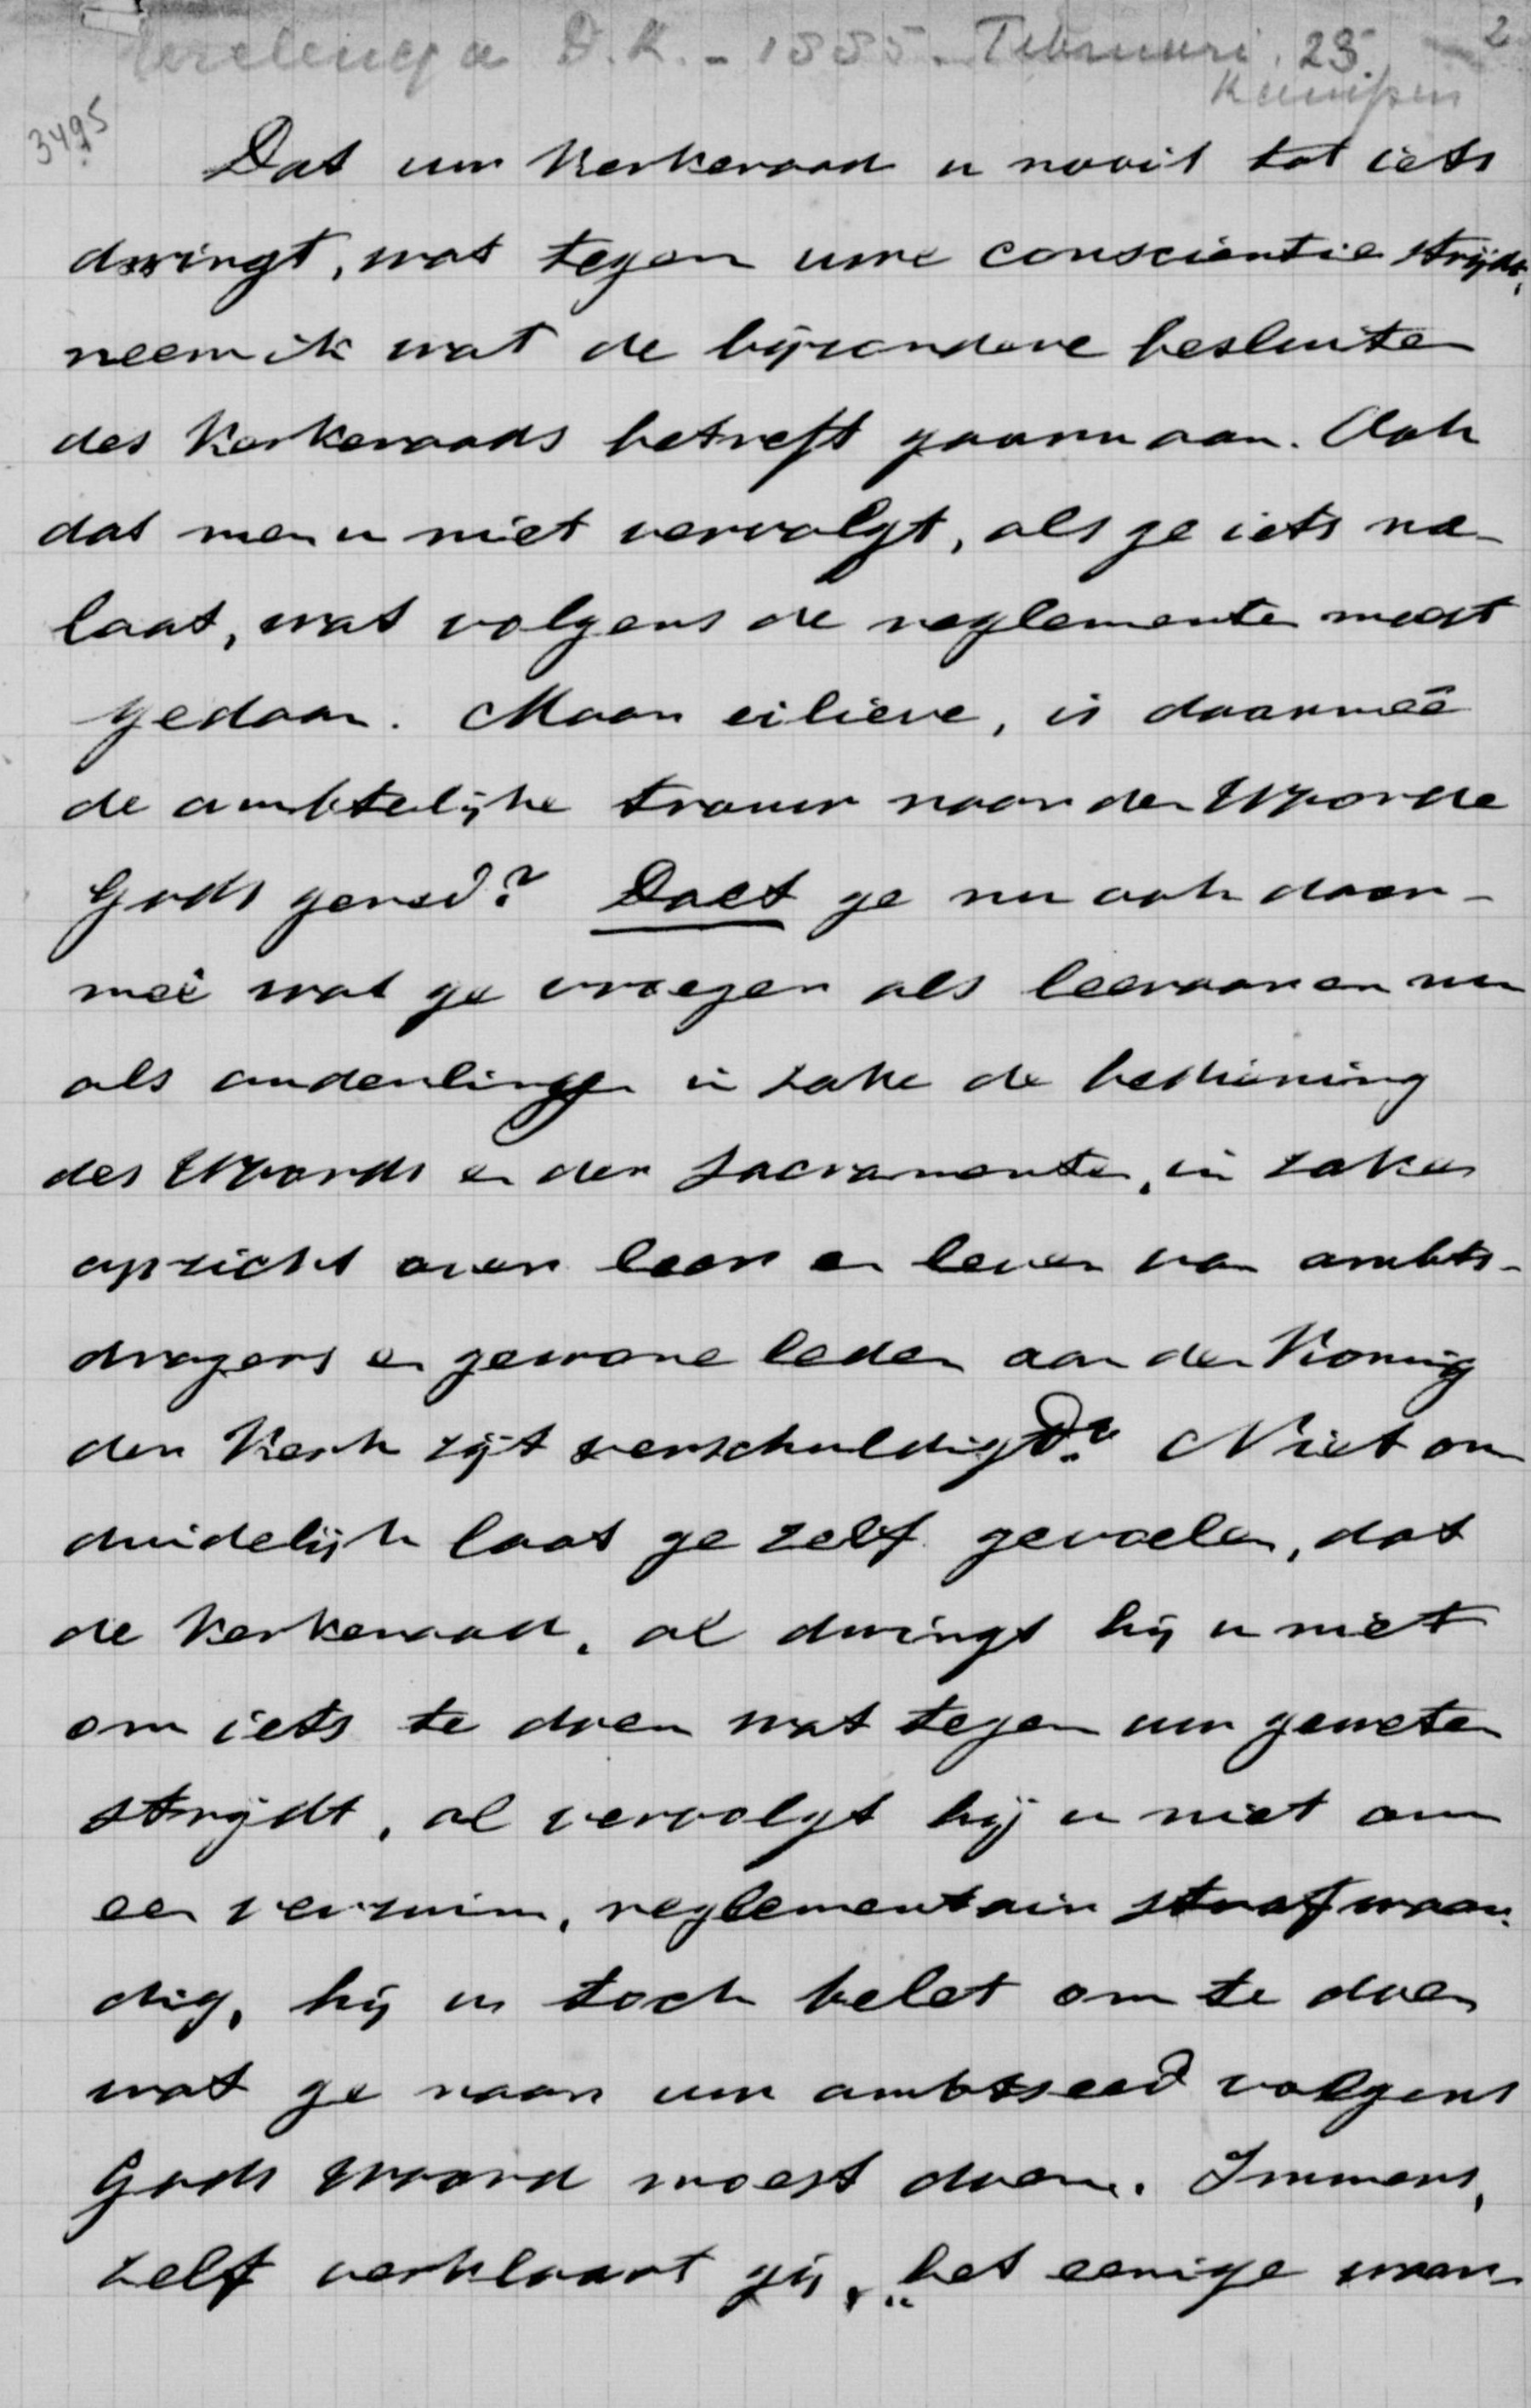 D.K. - 1885. Februari. 25. 2
Kampen
3495
Dat uw Kerkeraad u nooit tot iets
dwingt, wat tegen uwe conscientie strijdt,
neem ik wat de bijzondere besluiten
des Kerkeraads betreft gaarne aan. Ook
dat men u niet vervolgt, als ge iets na-
laat, wat volgens de reglementen moest
gedaan. Maar eilieve, is daarmeê
de ambtelijke trouw naar den Woorde
Gods gered? Doet ge nu ook daar-
meê wat ge vroeger als leeraar en nu
als ouderling in zake de bediening
des Woords en der sacramenten, in zake
opzicht over leer en leven van ambts-
dragers en gewone leden aan den Koning
der Kerk zijt verschuldigd? Niet on
duidelijk laat ge zelf gevoelen, dat
de Kerkeraad, al dwingt hij u niet
om iets te doen wat tegen uw geweten
strijdt, al vervolgt hij u niet om
een verzuim, reglementair strafwaar-
dig, hij u toch belet om te doen
wat ge naar uw ambtseed volgens
Gods Woord moest doen. Immers,
zelf verklaart gij, „het eenige waar-